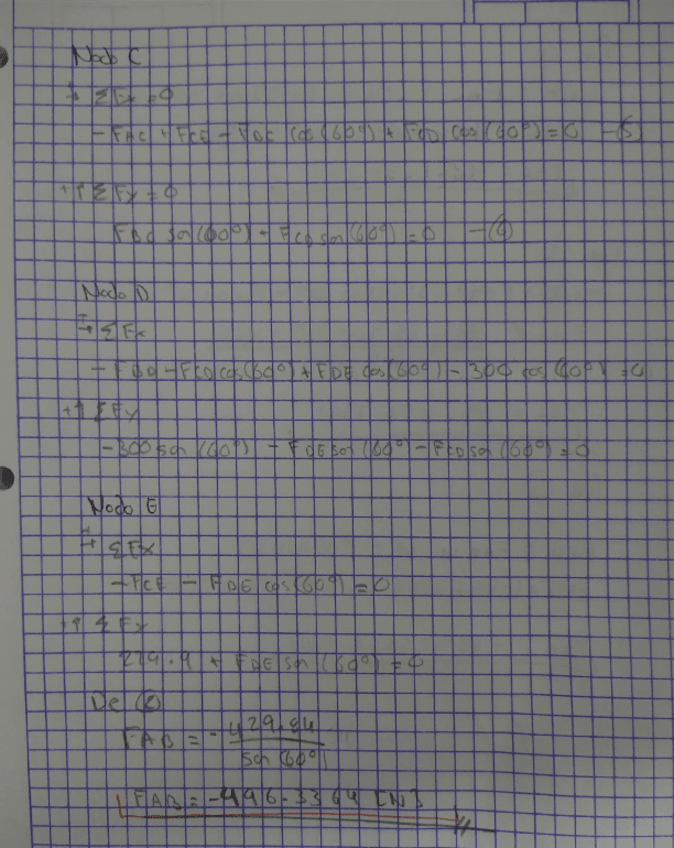 Nodo C
+→ ΣFx = 0
- FAC + FCE - FBC cos(60°) + FCD cos(60°) = 0 -(5)
+↑ΣFy = 0
FBC sen(60°) + FCD sen(60°) = 0 -(6)
Nodo D
+→ ΣFx
- FBD - FCD cos(60°) + FDE cos(60°) - 300 cos(60°) = 0
+↑ ΣFy
-300 sen(60°) - FDE sen(60°) - FCD sen(60°) = 0
Nodo E
+→ ΣFx
- FCE - FDE cos(60°) = 0
+↑ ΣFy
229.9 + FDE sen(60°) = 0
De (2)
FAB = - 429.84
sen(60°)
FAB = -496.3364 [N]